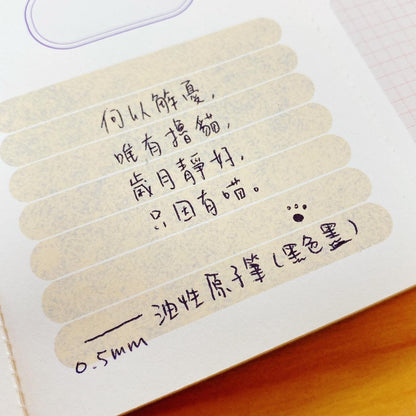 何以解憂，
唯有擼貓，
歲月靜好，
只因有喵。
油性原子筆(黑色墨)
0.5mm